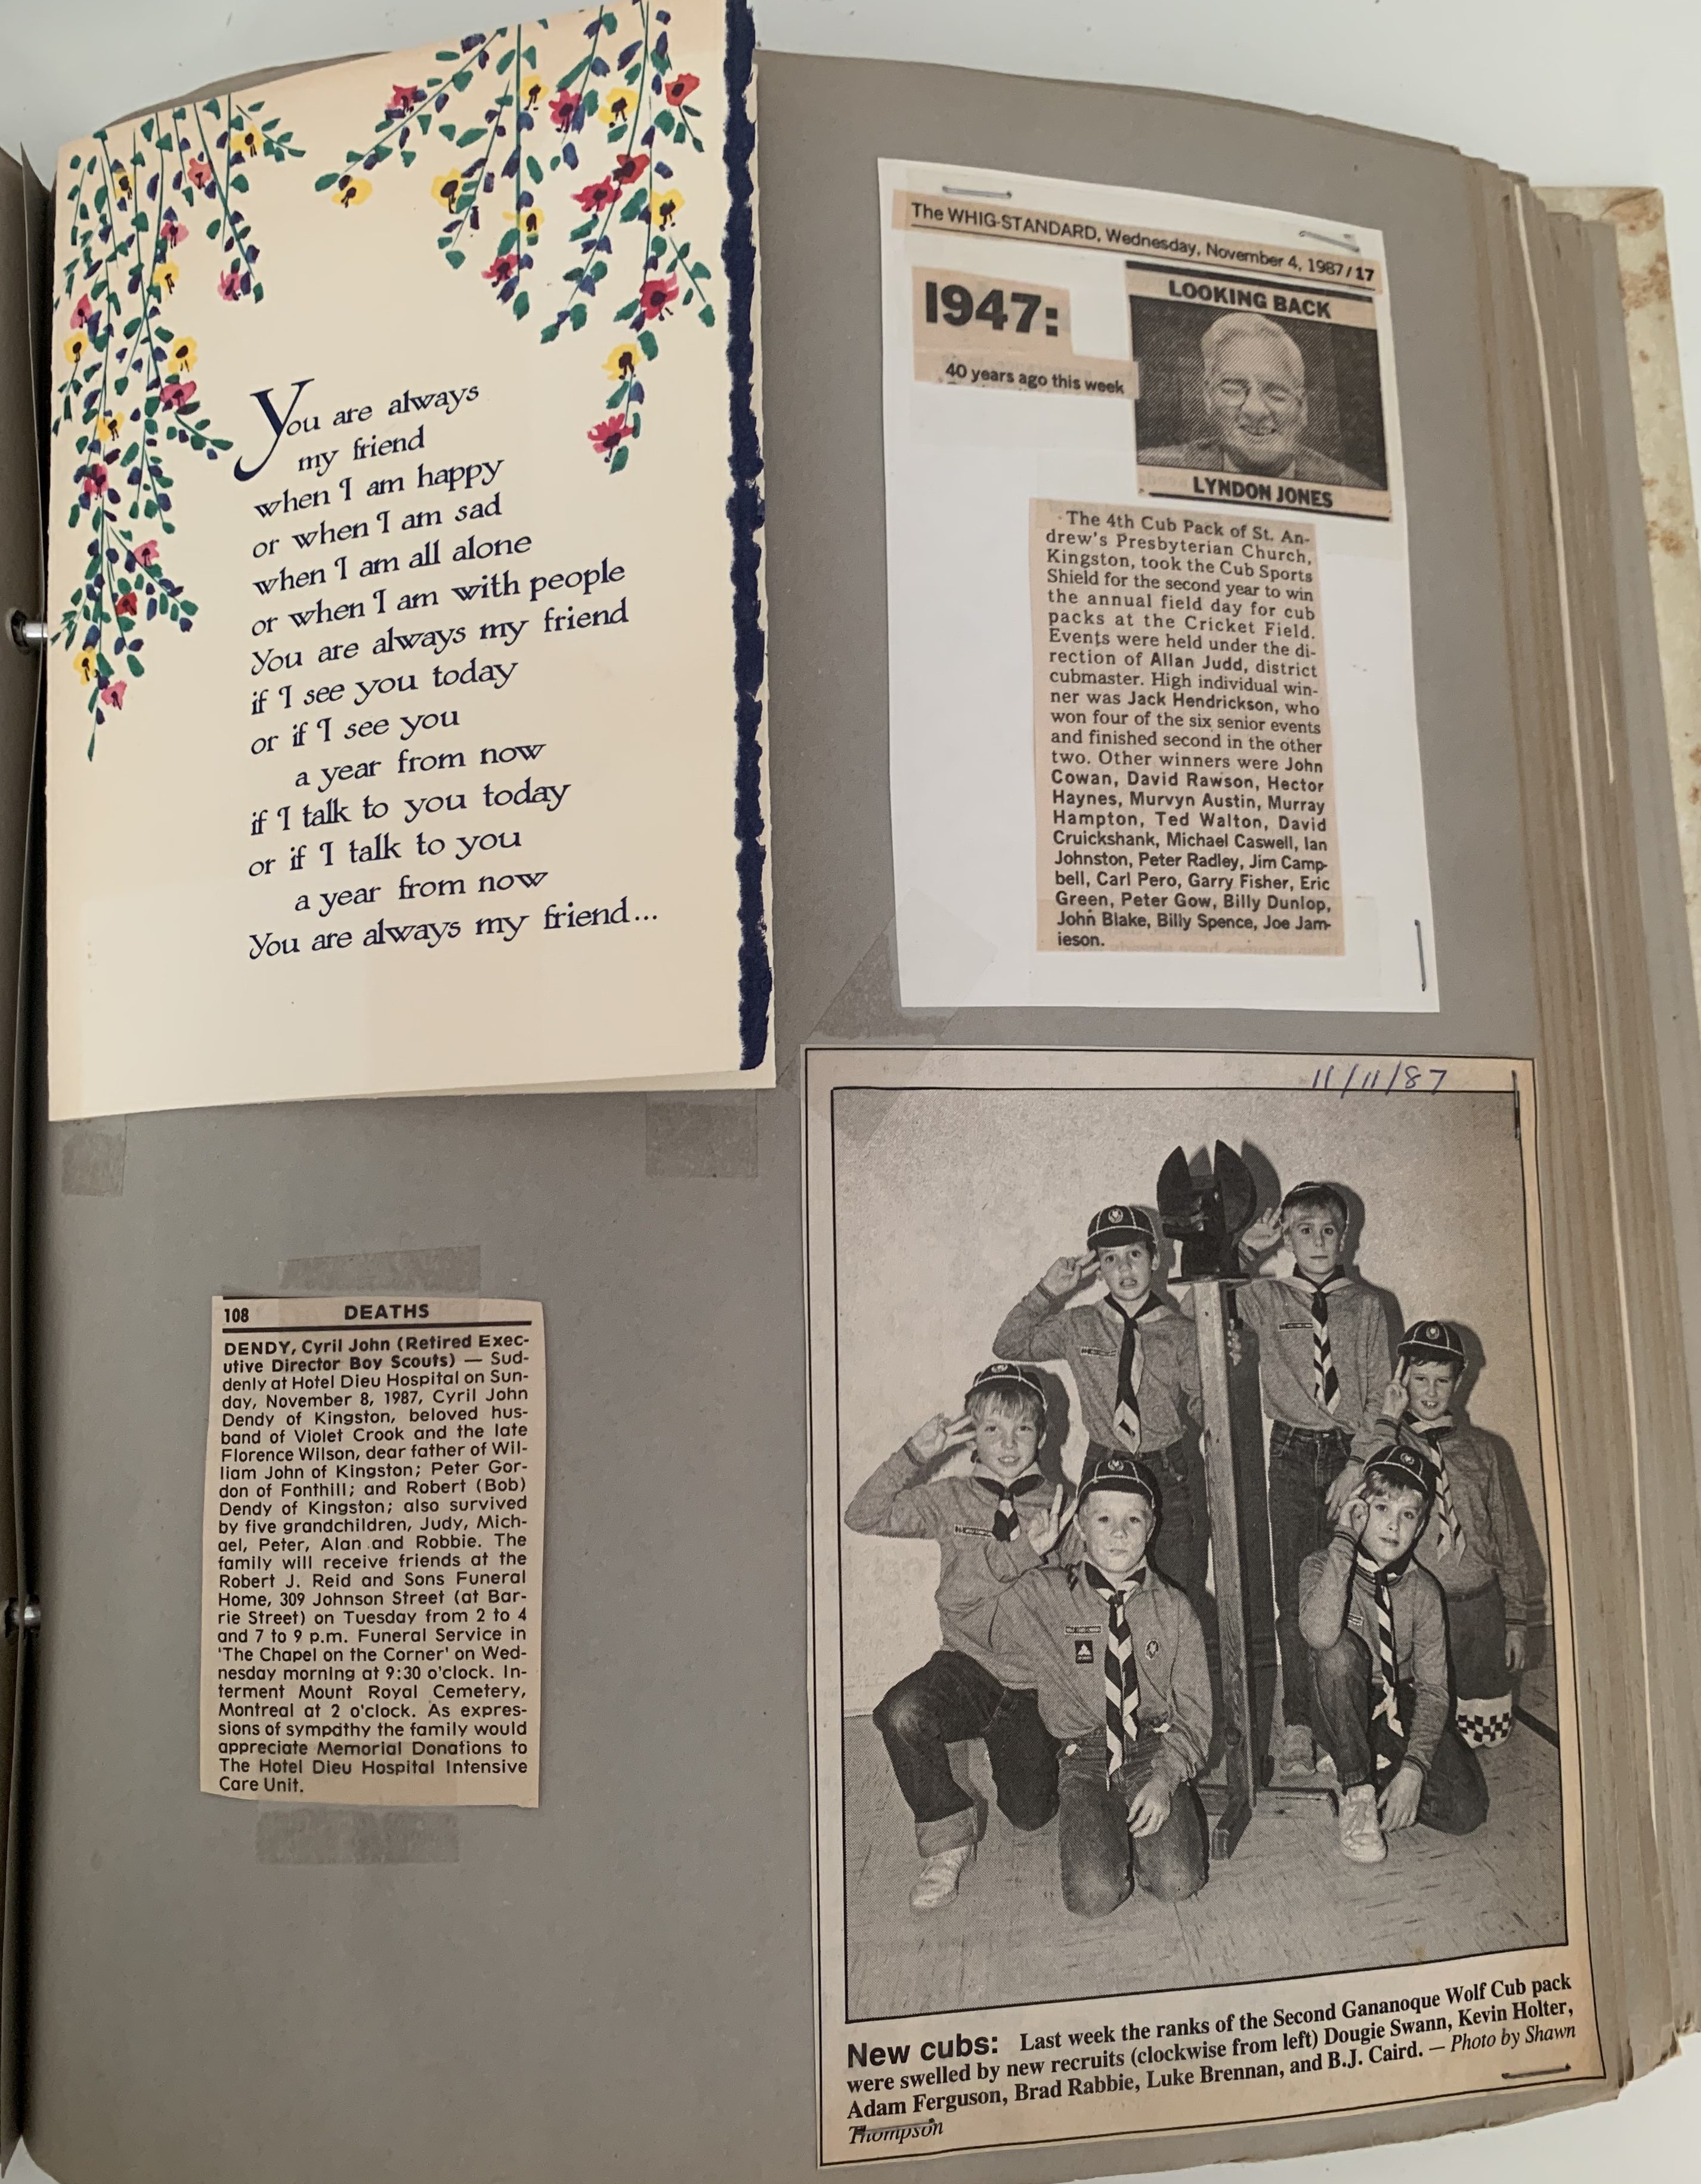 You are always
my friend
when I am happy
or when I am sad
when I am all alone
or when I am with people
You are always my friend
if I see you today
or if I see you
a year from now
if I talk to you today
or if I talk to you
a year from now
You are always my friend...
The WHIG-STANDARD, Wednesday, November 4, 1987/17
1947:
40 years ago this week
LOOKING BACK
LYNDON JONES
The 4th Cub Pack of St. An-
drew's Presbyterian Church,
Kingston, took the Cub Sports
Shield for the second year to win
the annual field day for cub
packs at the Cricket Field.
Events were held under the di-
rection of Allan Judd, district
cubmaster. High individual win-
ner was Jack Hendrickson, who
won four of the six senior events
and finished second in the other
two. Other winners were John
Cowan, David Rawson, Hector
Haynes, Murvyn Austin, Murray
Hampton, Ted Walton, David
Cruickshank, Michael Caswell, Ian
Johnston, Peter Radley, Jim Camp-
bell, Carl Pero, Garry Fisher, Eric
Green, Peter Gow, Billy Dunlop,
John Blake, Billy Spence, Joe Jam-
ieson.
108 DEATHS
DENDY, Cyril John (Retired Exec-
utive Director Boy Scouts) — Sud-
denly at Hotel Dieu Hospital on Sun-
day, November 8, 1987, Cyril John
Dendy of Kingston, beloved hus-
band of Violet Crook and the late
Florence Wilson, dear father of Wil-
liam John of Kingston; Peter Gor-
don of Fonthill; and Robert (Bob)
Dendy of Kingston; also survived
by five grandchildren, Judy, Mich-
ael, Peter, Alan and Robbie. The
family will receive friends at the
Robert J. Reid and Sons Funeral
Home, 309 Johnson Street (at Bar-
rie Street) on Tuesday from 2 to 4
and 7 to 9 p.m. Funeral Service in
'The Chapel on the Corner' on Wed-
nesday morning at 9:30 o'clock. In-
terment Mount Royal Cemetery,
Montreal at 2 o'clock. As expres-
sions of sympathy the family would
appreciate Memorial Donations to
The Hotel Dieu Hospital Intensive
Care Unit.
11/11/87
New cubs: Last week the ranks of the Second Gananoque Wolf Cub pack
were swelled by new recruits (clockwise from left) Dougie Swann, Kevin Holter,
Adam Ferguson, Brad Rabbie, Luke Brennan, and B.J. Caird. — Photo by Shawn
Thompson